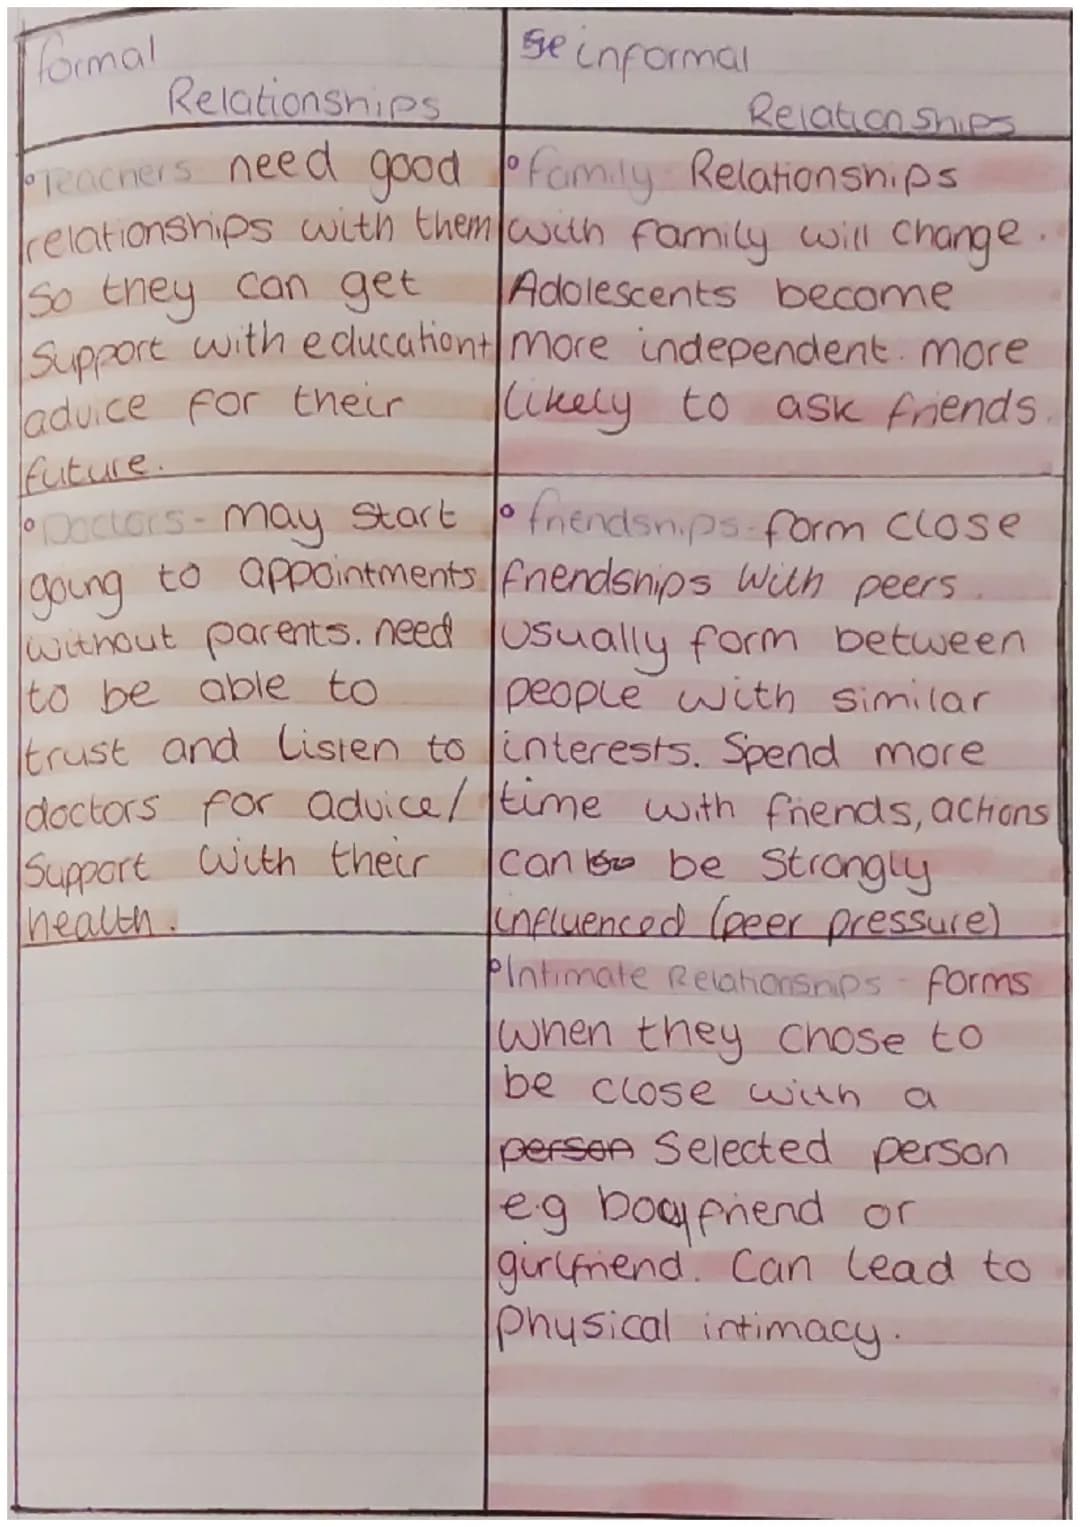 formal
Relationships
•Teachers need good
relationships with them
So they can get
Support with education+
advice for their
future.
•Doctors- may start
going to appointments
without parents. need
to be able to
trust and listen to
doctors for advice/
Support with their
health.
informal
Relationships
•family Relationships
with family will change.
Adolescents become
more independent. more
likely to ask friends.
•friendships-form close
friendships with peers.
Usually form between
people with similar
interests. Spend more
time with friends, actions
can be strongly
influenced (peer pressure)
•Intimate Relationships - forms
when they chose to
be close with a
person Selected person
e.g boyfriend or
girlfriend. Can lead to
Physical intimacy.